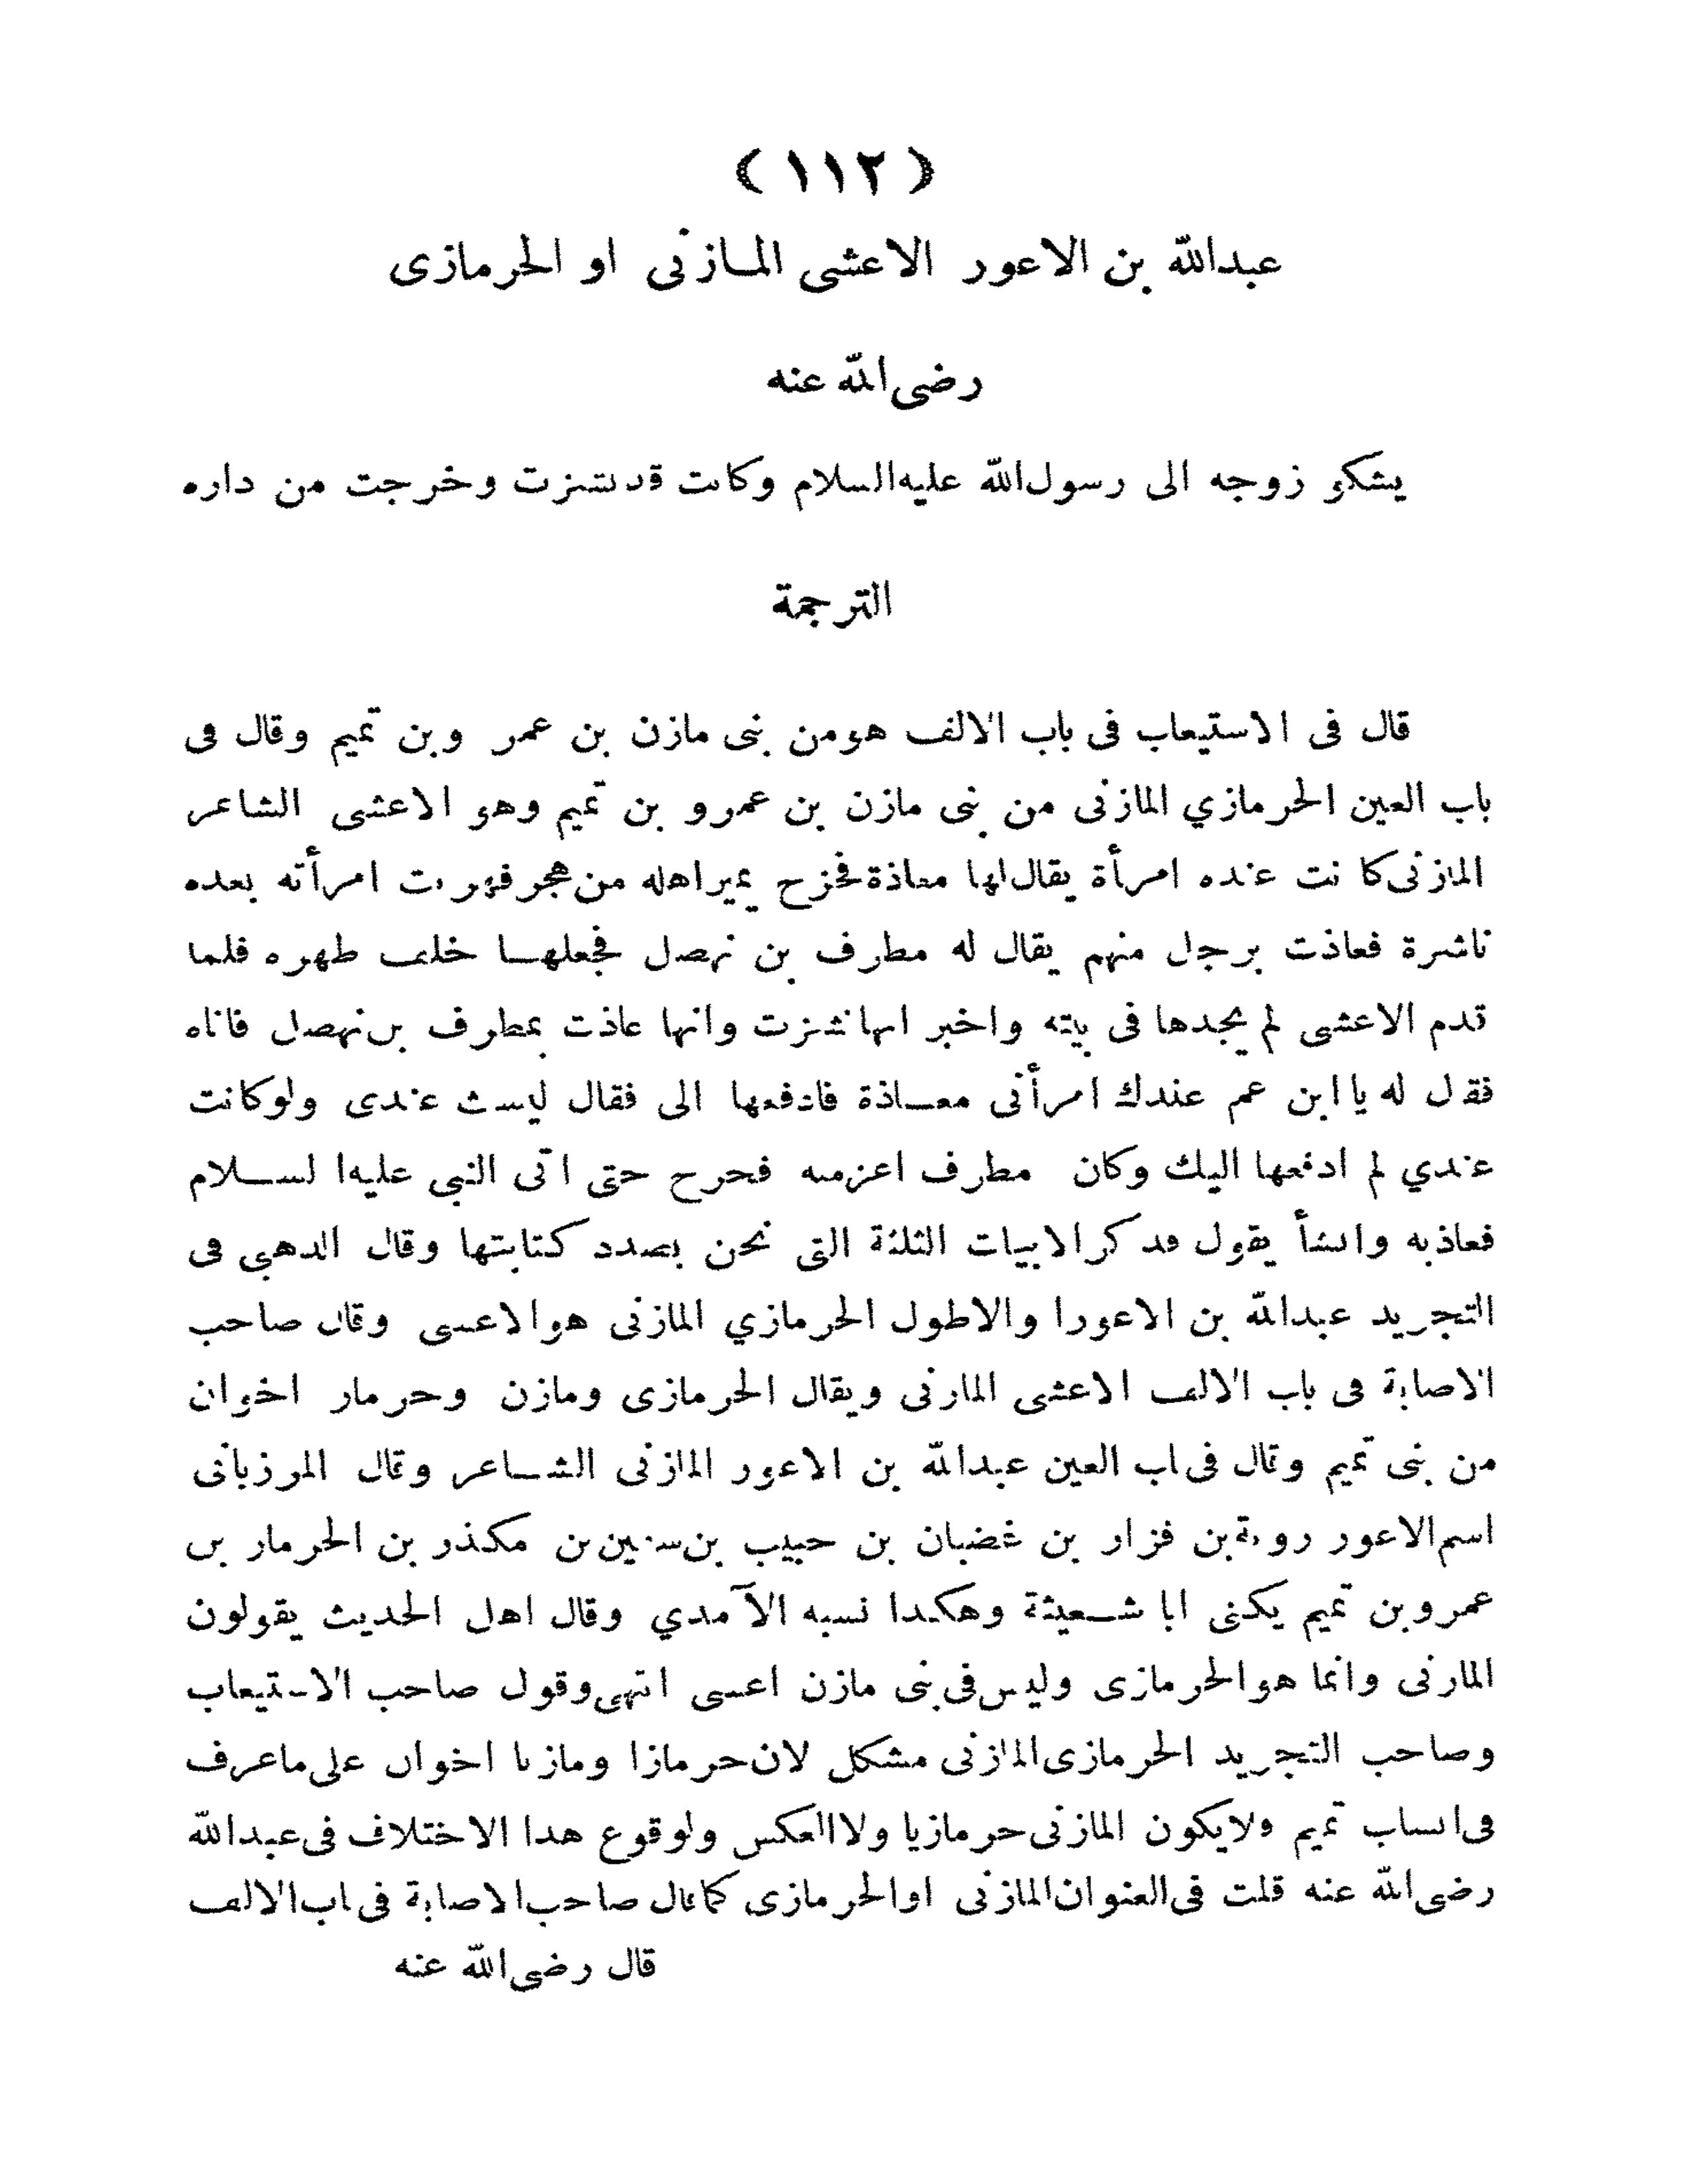 ﴿ ١١٢ ﴾
عبدالله بن الاعور الاعشى المازنى او الحرمازى
رضى الله عنه
يشكو زوجه الى رسول الله عليه السلام وكانت قد نشزت وخرجت من داره
الترجمة
قال فى الاستيعاب فى باب الالف هو من بنى مازن بن عمر وبن تميم وقال فى
باب العين الحرمازي المازنى من بنى مازن بن عمرو بن تميم وهو الاعشى الشاعر
المازنى كانت عنده امرأة يقال لها معاذة فخرج يمير اهله من هجر فهربت امرأته بعده
ناشزة فعاذت برجل منهم يقال له مطرف بن نهصل فجعلها خلف ظهره فلما
قدم الاعشى لم يجدها فى بيته واخبر انها نشزت وانها عاذت بمطرف بن نهصل فاتاه
فقال له يا ابن عم عندك امرأتى معاذة فادفعها الى فقال ليست عندى ولو كانت
عندي لم ادفعها اليك وكان مطرف اعز منه فخرج حتى اتى النبى عليه السلام
فعاذ به وانشأ يقول فذكر الابيات الثلثة التى نحن بصدد كتابتها وقال الذهبى فى
التجريد عبدالله بن الاعورا والاطول الحرمازي المازنى هو الاعشى وقال صاحب
الاصابة فى باب الالف الاعشى المازنى ويقال الحرمازى ومازن وحرماز اخوان
من بنى تميم وقال فى باب العين عبدالله بن الاعور المازنى الشاعر وقال المرزبانى
اسم الاعور رؤبة بن فزار بن غضبان بن حبيب بن سفيان بن مكذر بن الحرماز بن
عمرو بن تميم يكنى ابا شعيثة وهكذا نسبه الآمدي وقال اهل الحديث يقولون
المازنى وانما هو الحرمازى وليس فى بنى مازن اعشى انتهى وقول صاحب الاستيعاب
وصاحب التجريد الحرمازى المازنى مشكل لان حرمازا ومازنا اخوان على ما عرف
فى انساب تميم ولا يكون المازنى حرمازيا ولا العكس ولوقوع هذا الاختلاف فى عبدالله
رضى الله عنه قلت فى العنوان المازنى او الحرمازى كما قال صاحب الاصابة فى باب الالف
قال رضى الله عنه